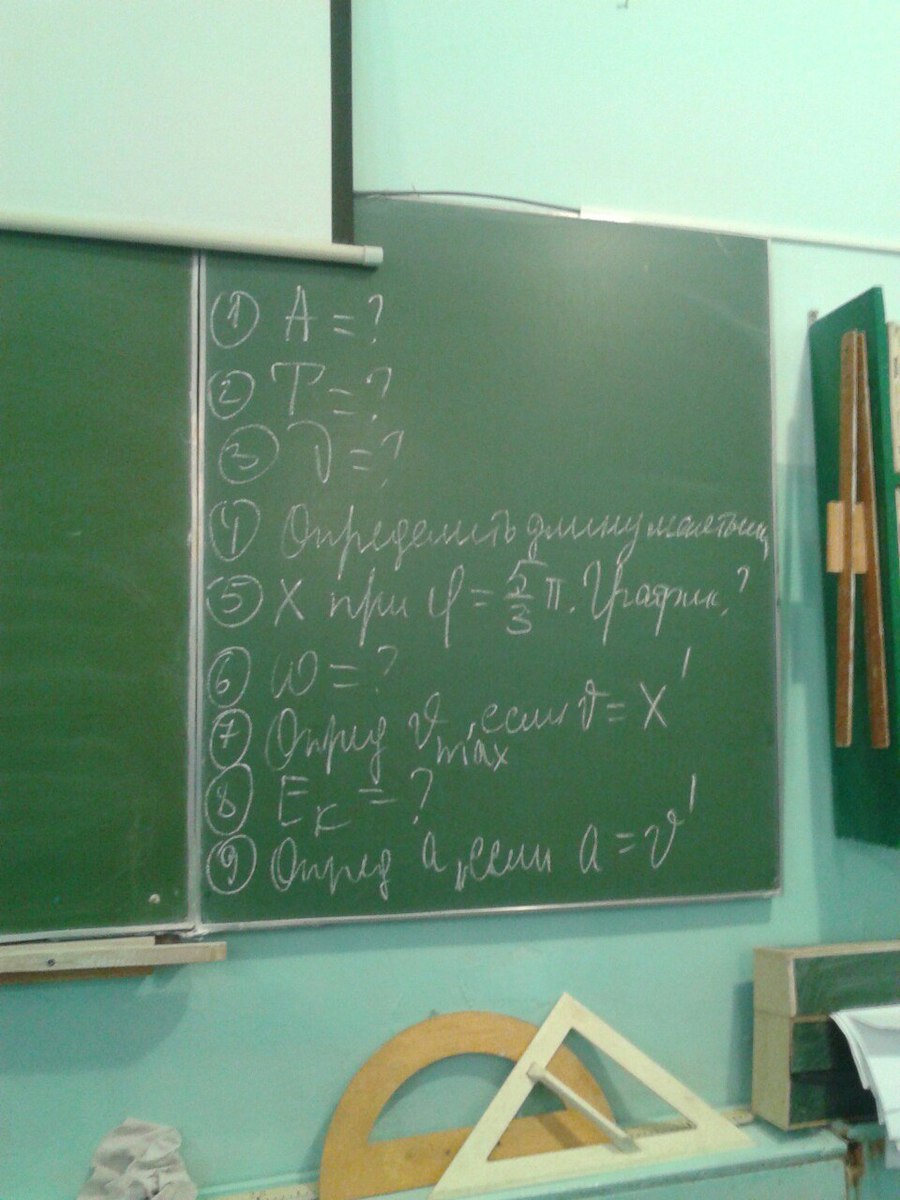 ① A = ?
② T = ?
③ ν = ?
④ Определить длину маятника
⑤ X при φ = 5/3 π. График?
⑥ ω = ?
⑦ Опред v max, если v = X'
⑧ Eк = ?
⑨ Опред a, если a = v'